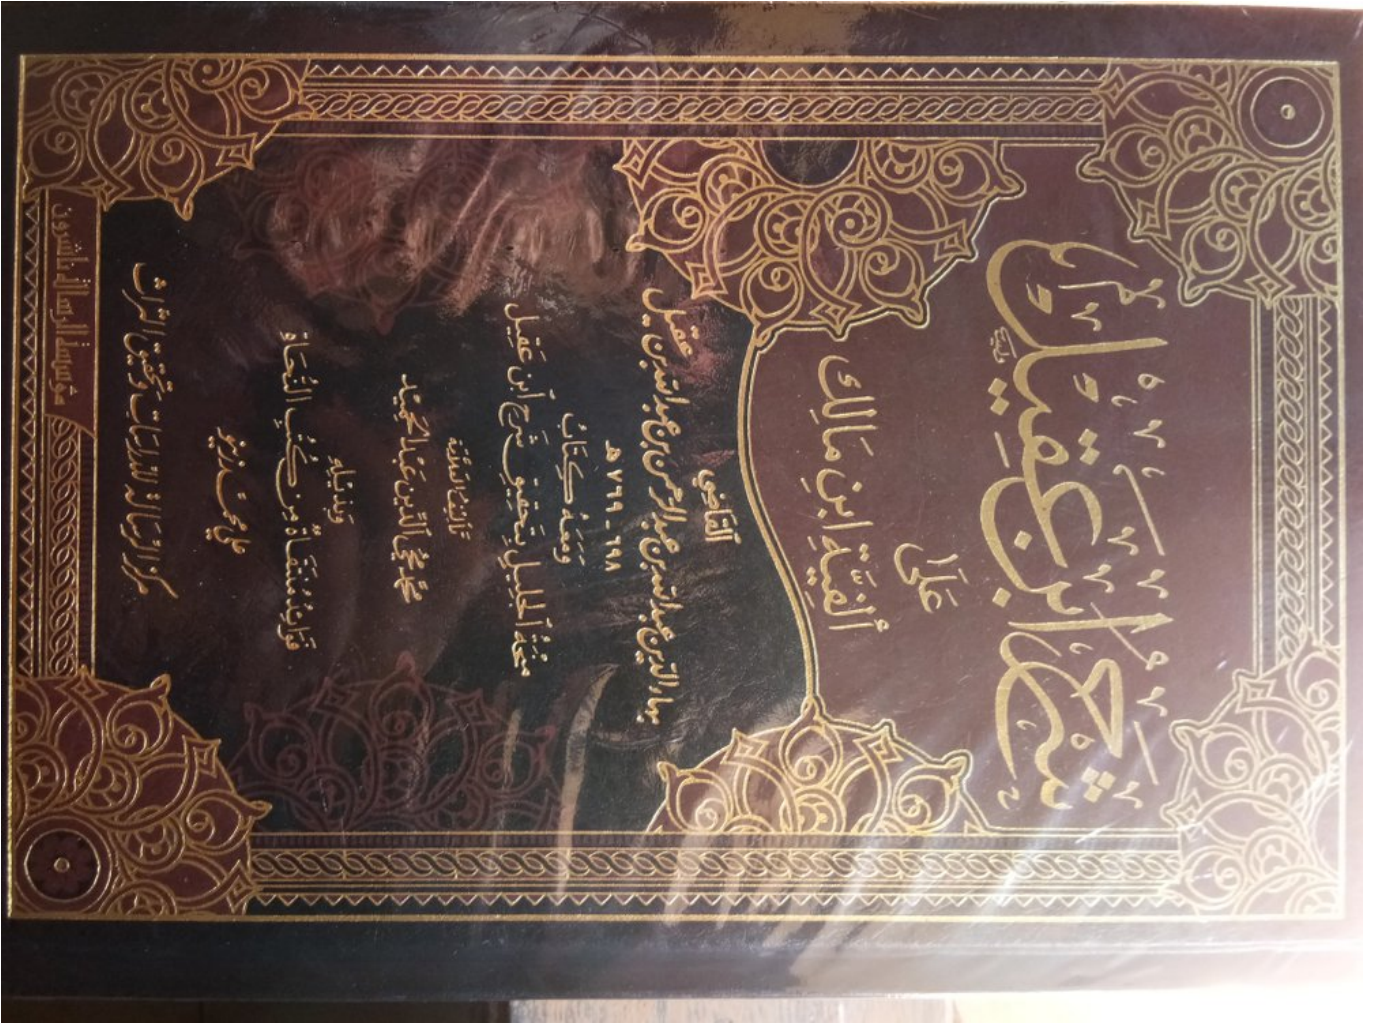 شرح ابن عقيل
على
ألفية ابن مالك
القاضي
بهاء الدين عبد الله بن عبد الرحمن بن عبد الله بن عقيل
٦٩٨ - ٧٦٩ هـ
ومعه كتاب
منحة الجليل بتحقيق شرح ابن عقيل
تأليف العلامة
محمد محيي الدين عبد الحميد
وبذيله
فوائد منتقاة من كتب النحاة
علي محمد زينو
مركز الرسالة للدراسات وتحقيق التراث
مؤسسة الرسالة ناشرون